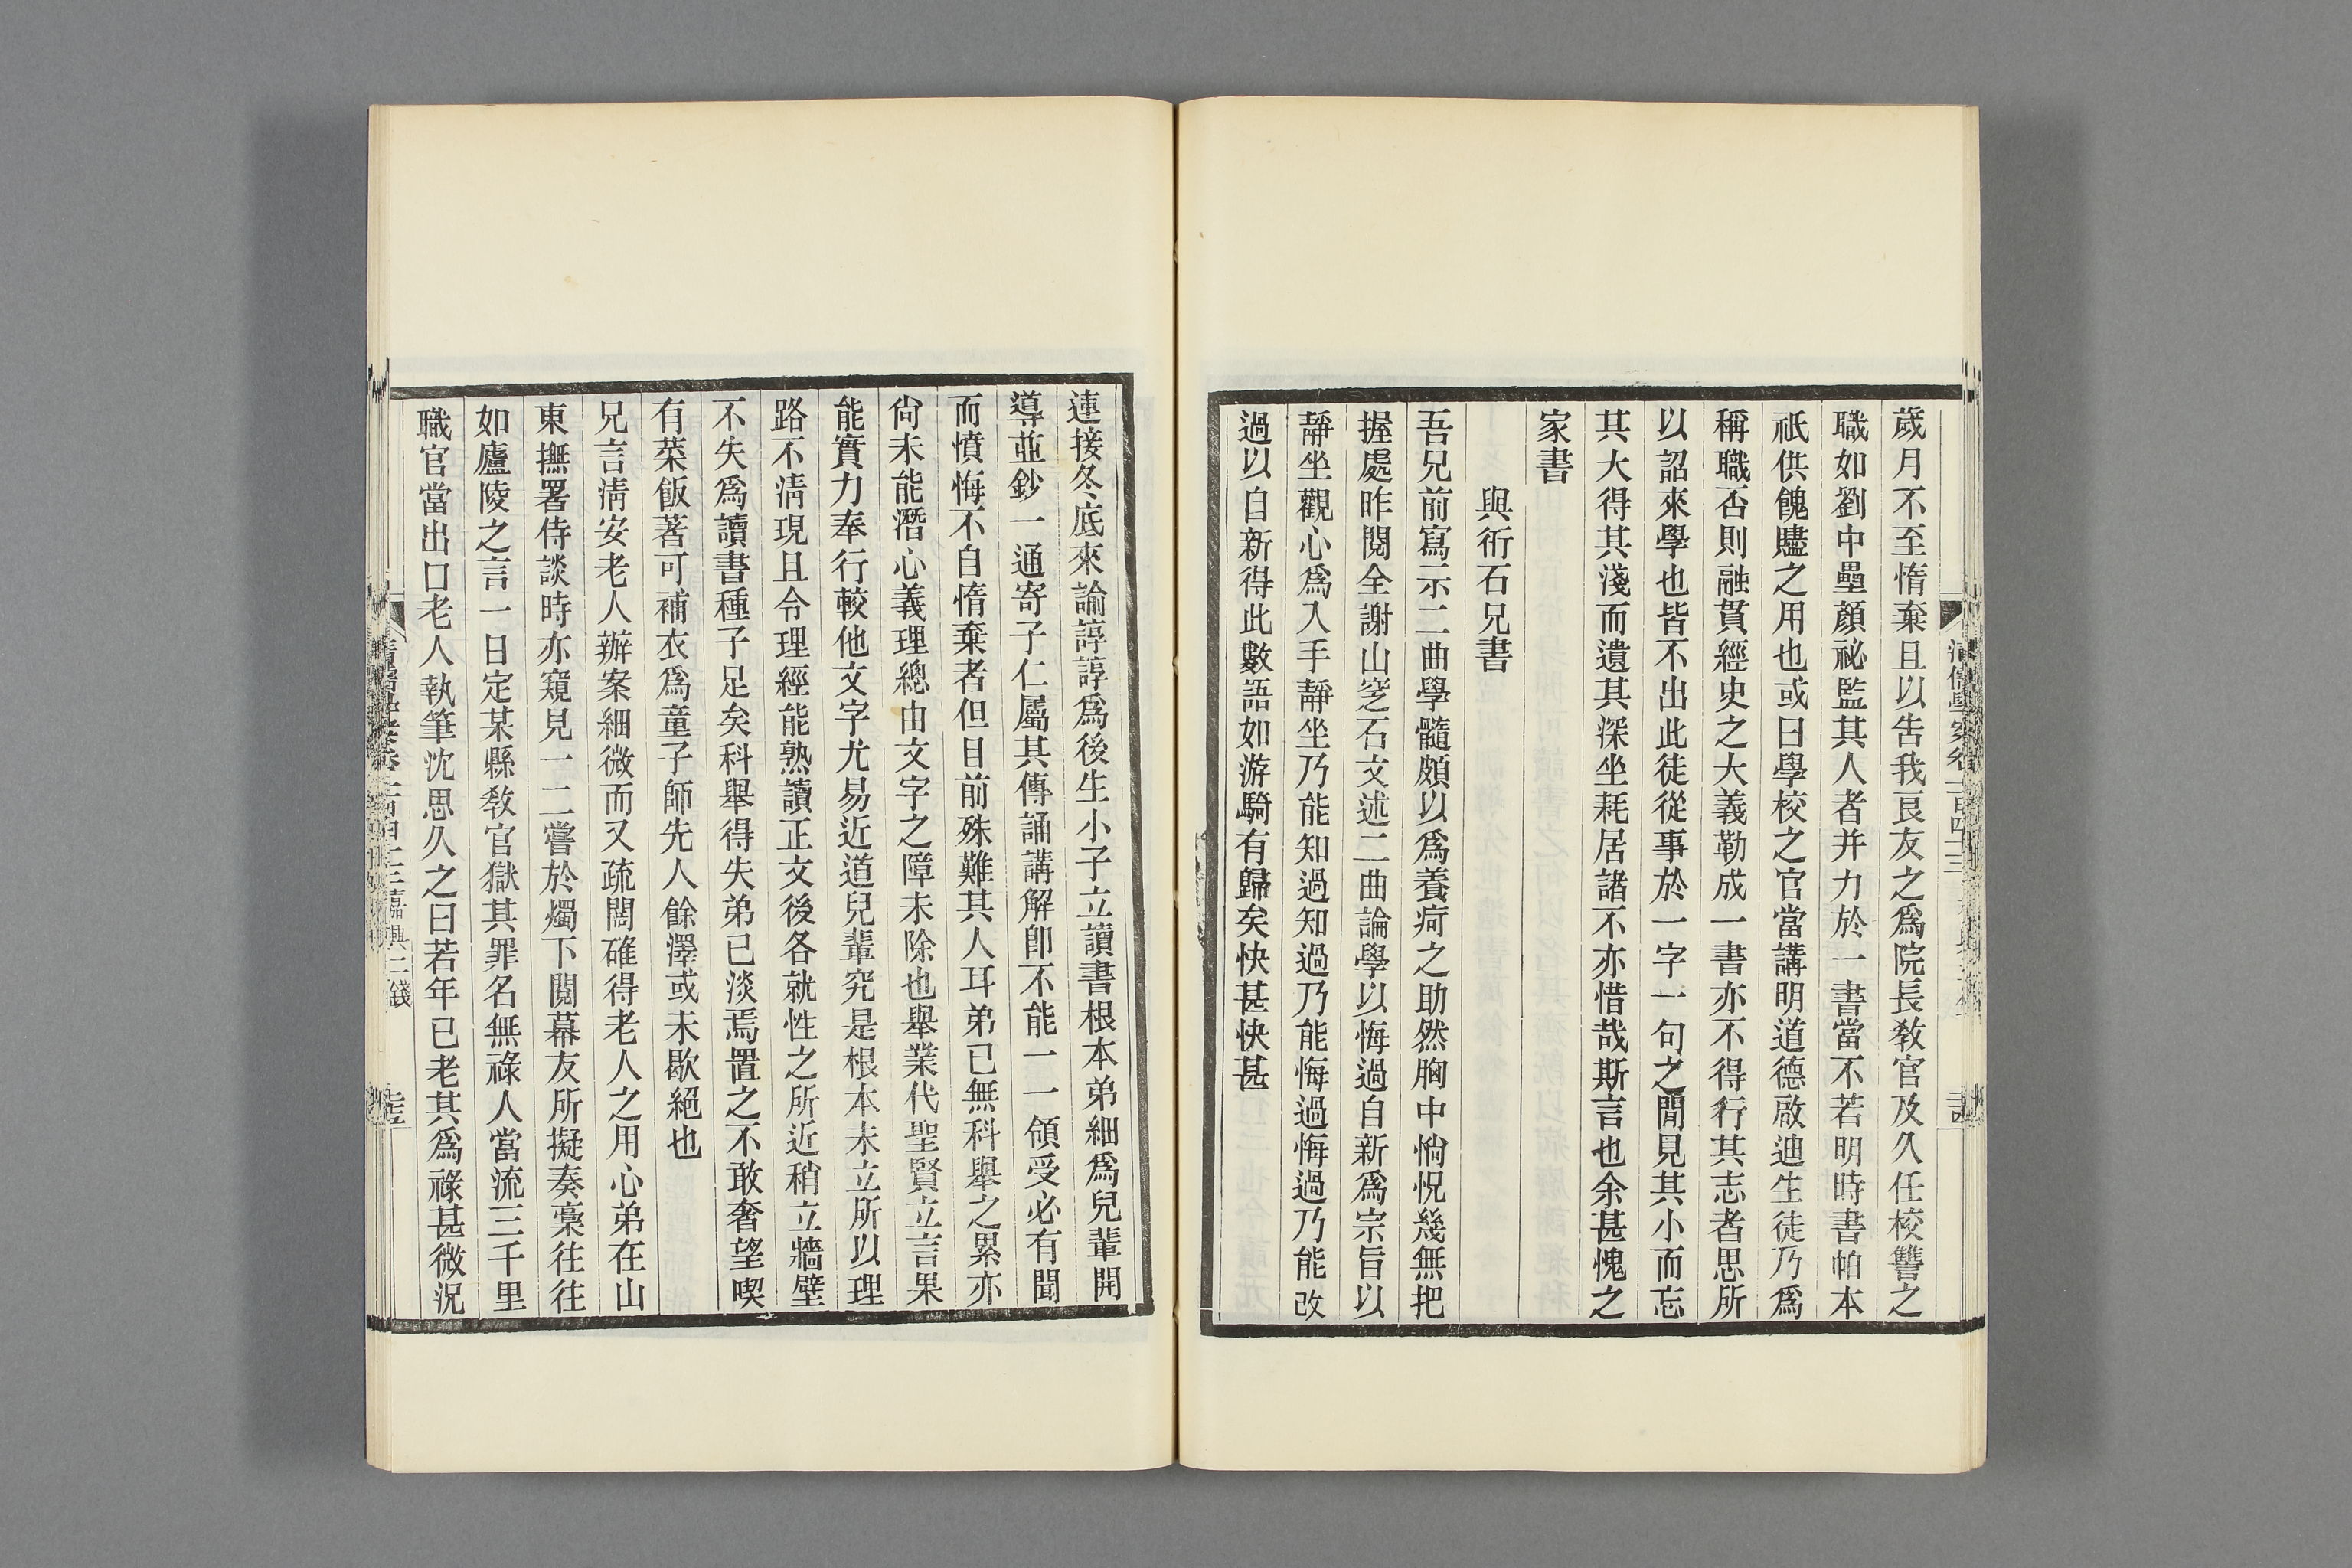 歲月不至惰棄且以告我良友之爲院長教官及久任校讐之
職如劉中壘顏祕監其人者并力於一書當不若明時書帕本
祇供餽贐之用也或曰學校之官當講明道德啟迪生徒乃爲
稱職否則融貫經史之大義勒成一書亦不得行其志者思所
以詔來學也皆不出此徒從事於一字一句之閒見其小而忘
其大得其淺而遺其深坐耗居諸不亦惜哉斯言也余甚愧之
家書
與衎石兄書
吾兄前寫示二曲學髓頗以爲養疴之助然胸中惝怳幾無把
握處昨閱全謝山窆石文述二曲論學以悔過自新爲宗旨以
靜坐觀心爲入手靜坐乃能知過知過乃能悔過悔過乃能改
過以自新得此數語如游騎有歸矣快甚快甚
連接冬底來諭諄諄爲後生小子立讀書根本弟細爲兒輩開
導並鈔一通寄子仁屬其傳誦講解卽不能一一領受必有聞
而憤悔不自惰棄者但目前殊難其人耳弟已無科舉之累亦
尙未能潛心義理總由文字之障未除也舉業代聖賢立言果
能實力奉行較他文字尤易近道兒輩究是根本未立所以理
路不淸現且令理經能熟讀正文後各就性之所近稍立牆壁
不失爲讀書種子足矣科舉得失弟已淡焉置之不敢奢望喫
有菜飯著可補衣爲童子師先人餘澤或未歇絕也
兄言淸安老人辦案細微而又疏闊確得老人之用心弟在山
東撫署侍談時亦窺見一二嘗於燭下閱幕友所擬奏稾往往
如廬陵之言一日定某縣敎官獄其罪名無祿人當流三千里
職官當出口老人執筆沈思久之曰若年已老其爲祿甚微況
清儒學案卷一百四十三 嘉興二錢